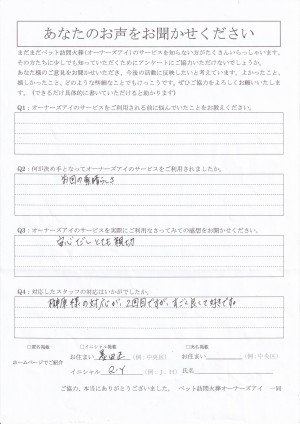 あなたのお声をお聞かせください
まだまだペット訪問火葬(オーナーズアイ)のサービスを知らない方がたくさんいらっしゃいます。
その方たちに少しでも知っていただくためにアンケートにご協力いただけないでしょうか。
あなた様のご意見をお聞かせいただき、今後の活動に反映したいと考えています。よかったこと、
嬉しかったこと、どのような些細なことでもけっこうです。ぜひご協力をよろしくお願いいたします。(できるだけ具体的に書いていただけると助かります)
Q1：オーナーズアイのサービスをご利用される前に悩んでいたことをお教えください。
Q2：何が決め手となってオーナーズアイのサービスをご利用されましたか。
前回の素晴らしさ
Q3：オーナーズアイのサービスを実際にご利用なさってみての感想をお聞かせください。
安心だしとても親切
Q4：対応したスタッフの対応はいかがでしたか。
榊原様の対応が、2回目ですが、すごく良くて好きです
□匿名掲載 □イニシャル掲載 □実名掲載
ホームページでご紹介
お住まい 墨田区 (例：中央区) お住まい (例：中央区)
イニシャル R.Y (例：J．H) 氏名
ご協力、本当にありがとうございました。 ペット訪問火葬オーナーズアイ 一同